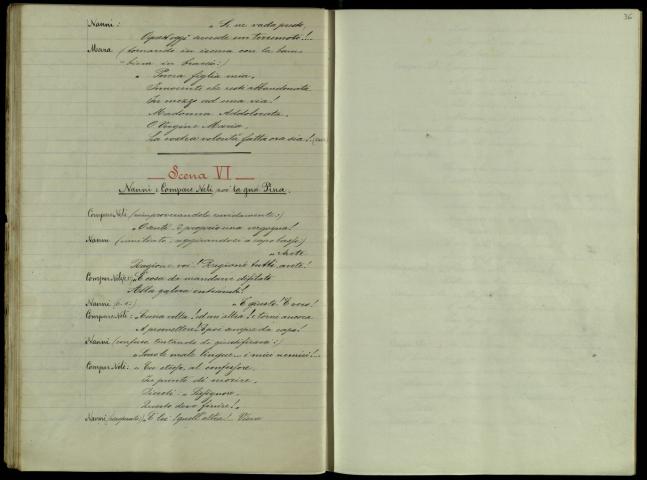 Nanni: „Se ne vada presto,
Oggi succede un terremoto!...
Mara (tornando in iscena con la bam-
bina in braccio:)
„Povera figlia mia,
Innocente che resti abbandonata
In mezzo ad una via!
Madonna Addolorata,
O Vergine Maria,
La vostra volontà fatta ora sia!
Scena VI
Nanni e Compare Neli, poi la gnà Pina.
Compare Neli (rimproverandolo ruvidamente:)
„È proprio una vergogna!
Nanni (a capo basso)
„Avete
Ragione, voi! Ragione tutti avete!
Compar Neli: „È cosa da mandarvi difilato
Alla galera entrambi!
Nanni (c. s.) „È giusto! È vero!
Compare Neli: „E una volta! ed un'altra! e torni ancora
A promettere! E poi sempre da capo!
Nanni (confuso tentando di giustificarsi:)
„Sono le male lingue... i miei nemici!...
Compar Neli: „Tu stesso, al confessore,
In punto di morire,
Dicesti: – Sissignore,
Questo deve finire!„
Nanni „È lei! quell'altra! Viene
36